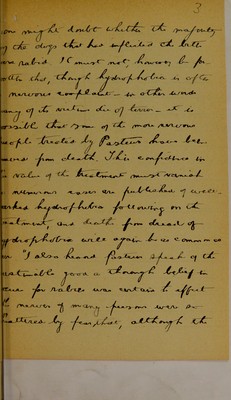 3
one might doubt whether the majority
of the dogs that has inflicted the bite
are rabid. It must not, however, be for-
gotten that, though hydrophobia is often
nervous complaint - in other words
many of its victims die of terror - it is
possible that some of the more nervous
people treated by Pasteur have been
saved from death. This confidence in
the value of the treatment must vanish
numerous cases are published of well-
marked hydrophobia following on the
treatment, and deaths from dread of
hydrophobia will again be as common
"I also heard Pasteur speak of the
good a thorough belief in
cure for rabies was certain to effect
the nerves of many persons were so
shattered by fear that, although the